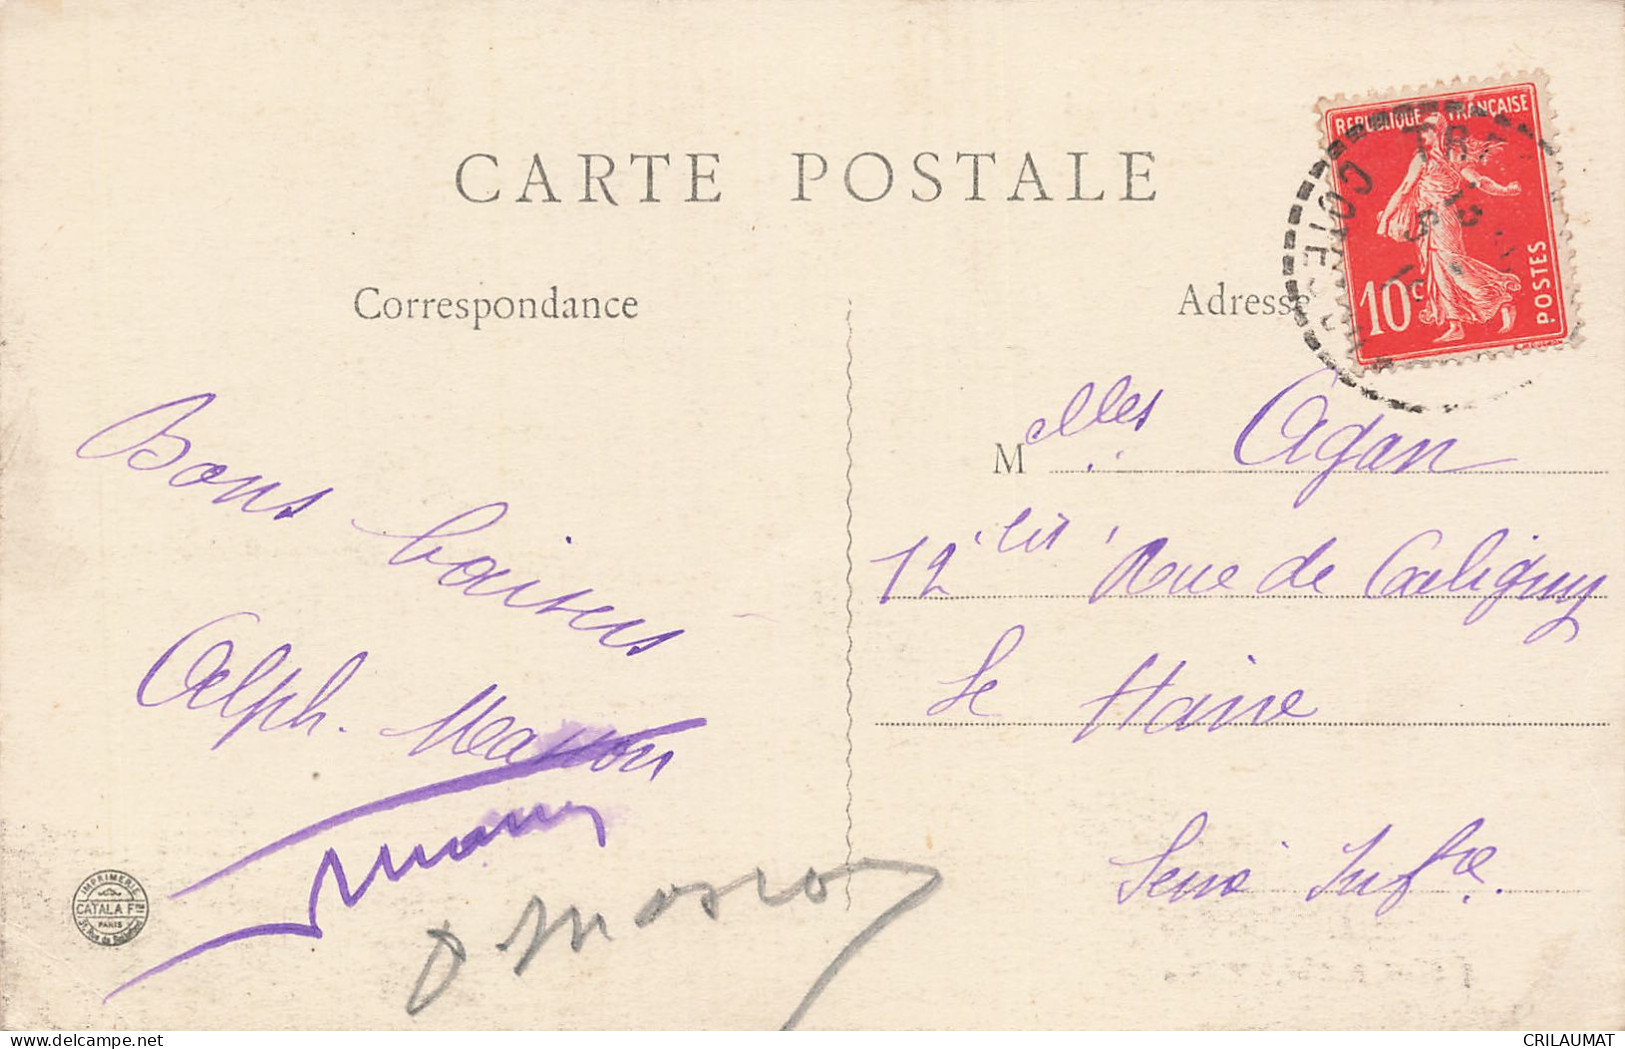 CARTE POSTALE
Correspondance
Adresse
REPUBLIQUE FRANÇAISE
10c
POSTES
COTES
Bons baisers
Alph. Masson
Masson
IMPRIMERIE
CATALA Fres
PARIS
Melles Agan
12 bis Rue de Caligny
Le Havre
Seine Infre.
delcampe.net
CRILAUMAT